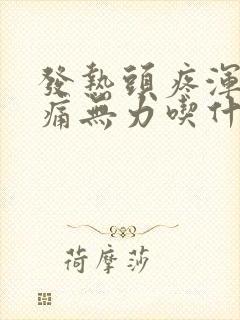 發熱頭疼渾
痛無力喫什
荷摩莎